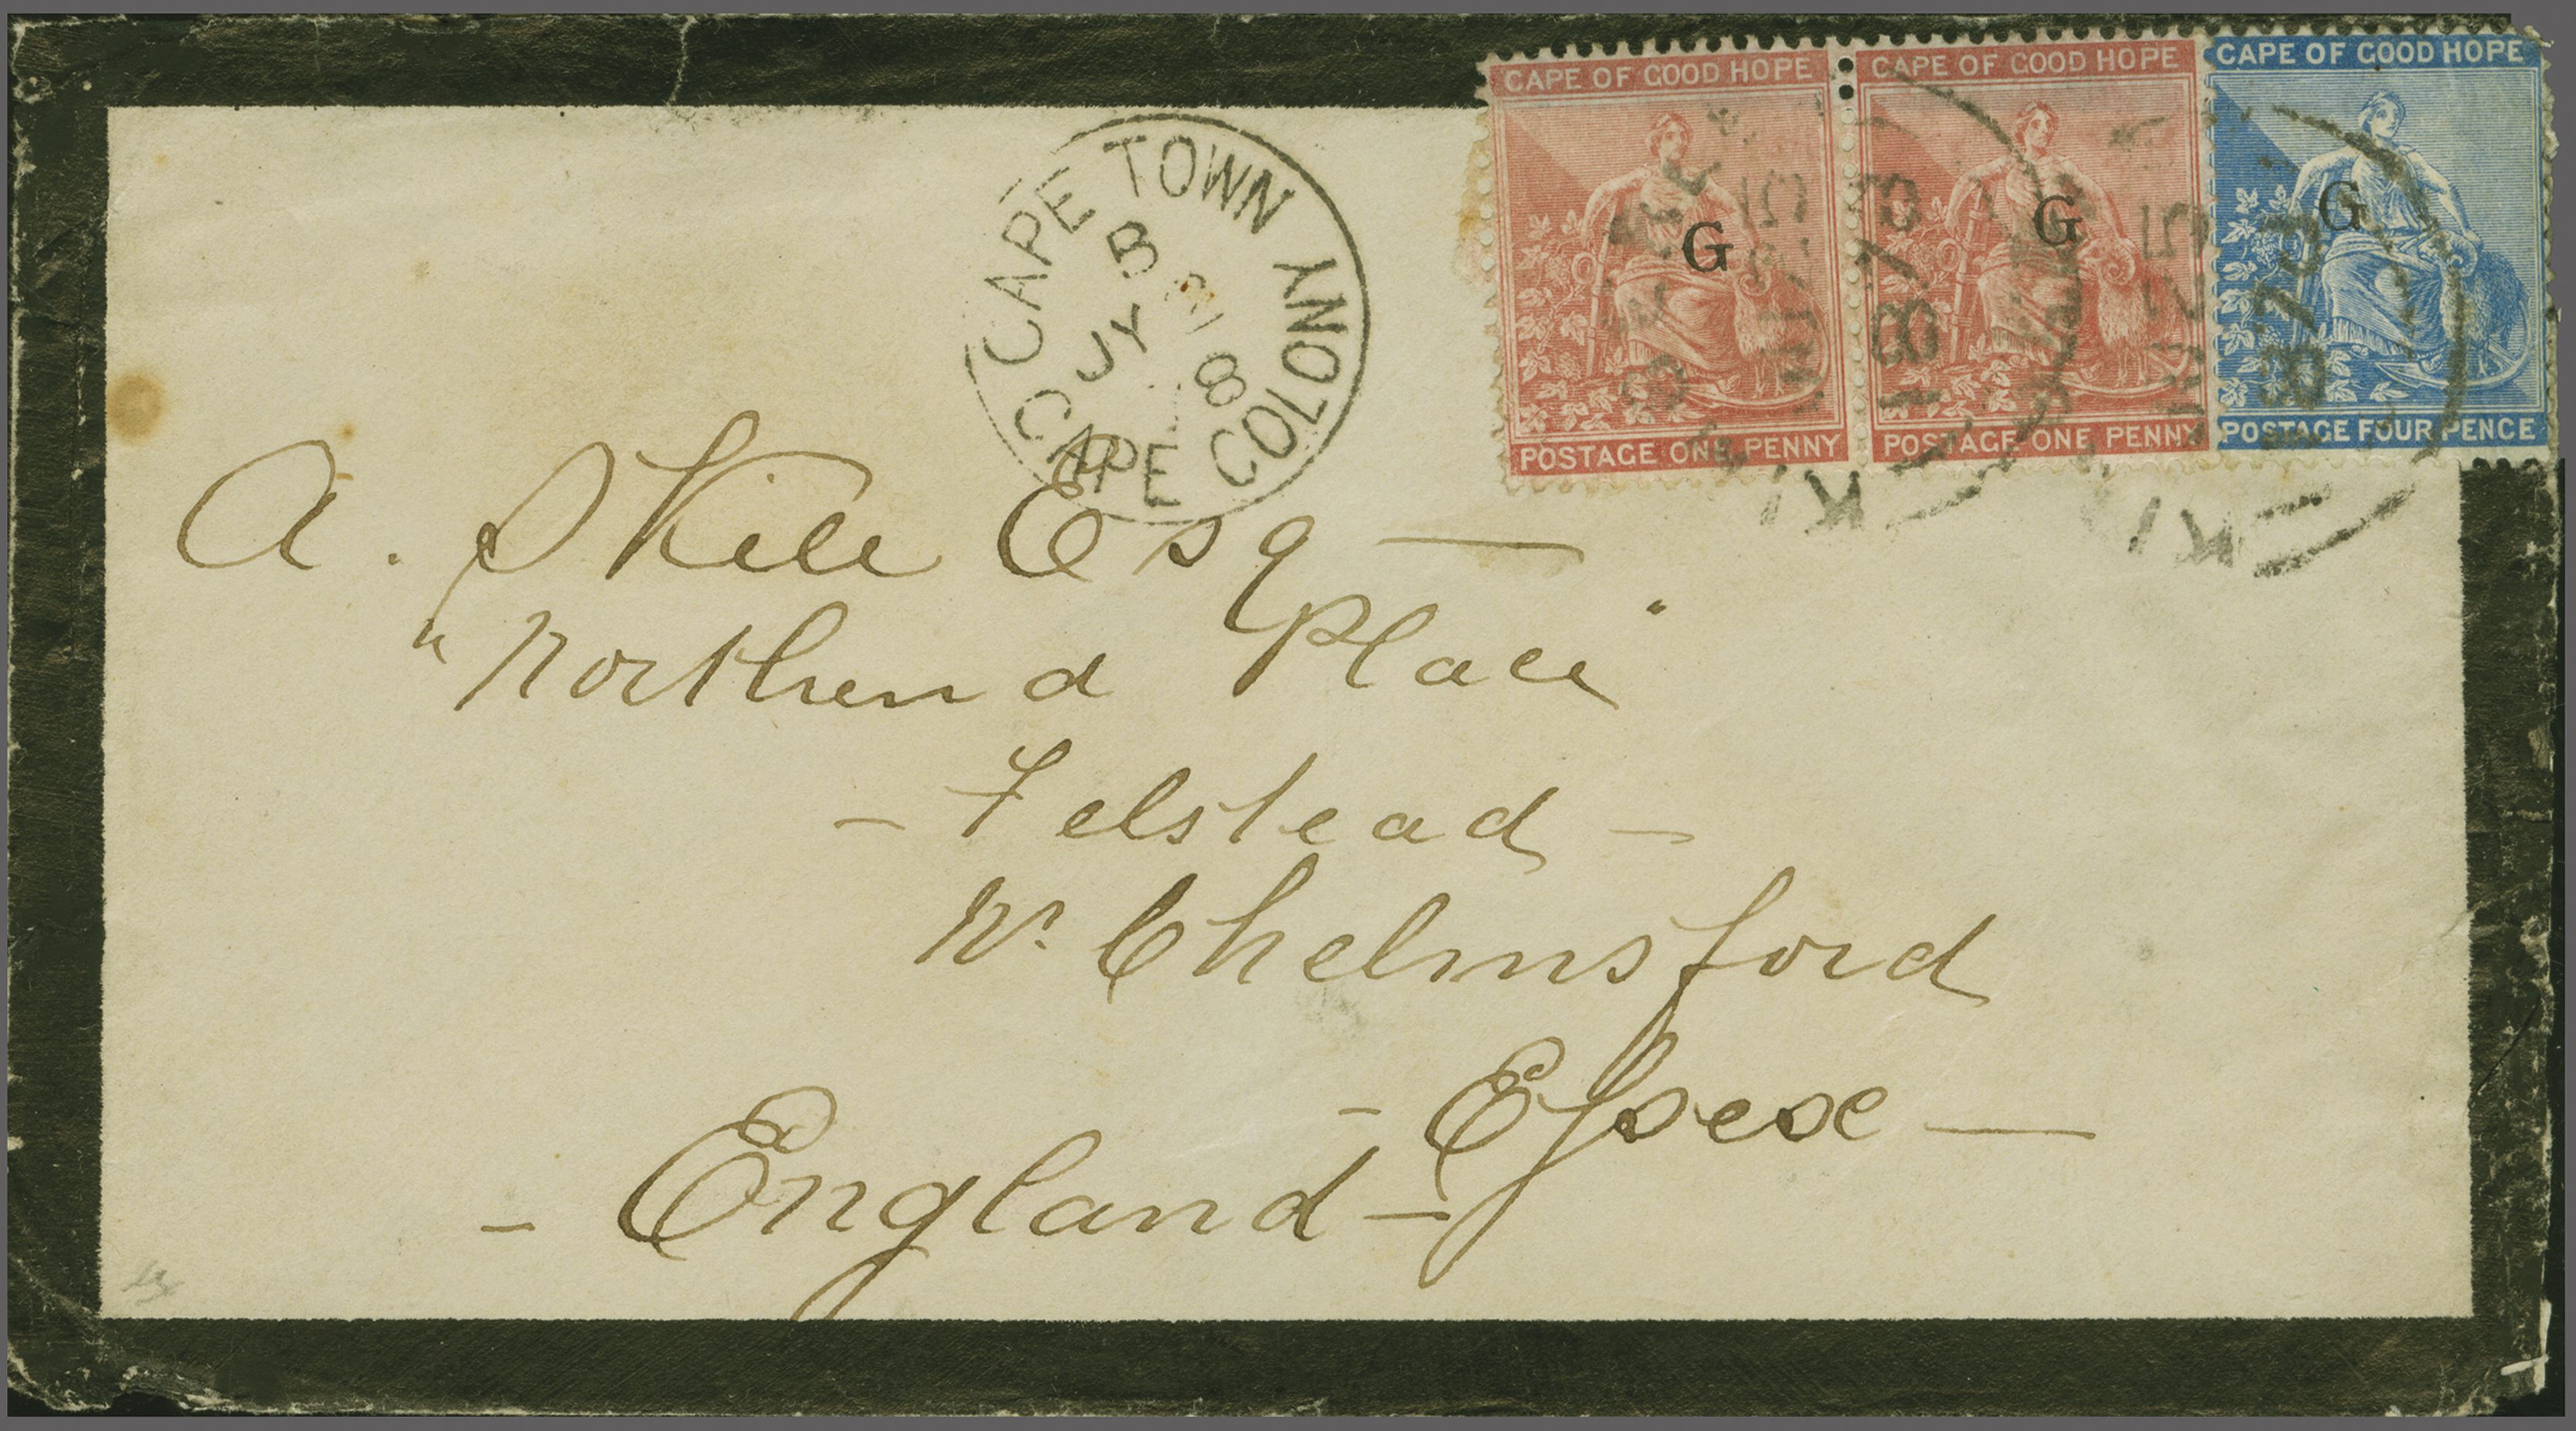 CAPE OF GOOD HOPE CAPE OF GOOD HOPE CAPE OF GOOD HOPE
G G G
POSTAGE ONE PENNY POSTAGE ONE PENNY POSTAGE FOUR PENCE
1873 1873
CAPE TOWN
B
JY 31
8
CAPE COLONY
A. Skill Esq
"Northend Place"
- Felstead -
Nr. Chelmsford
- Essex -
- England -